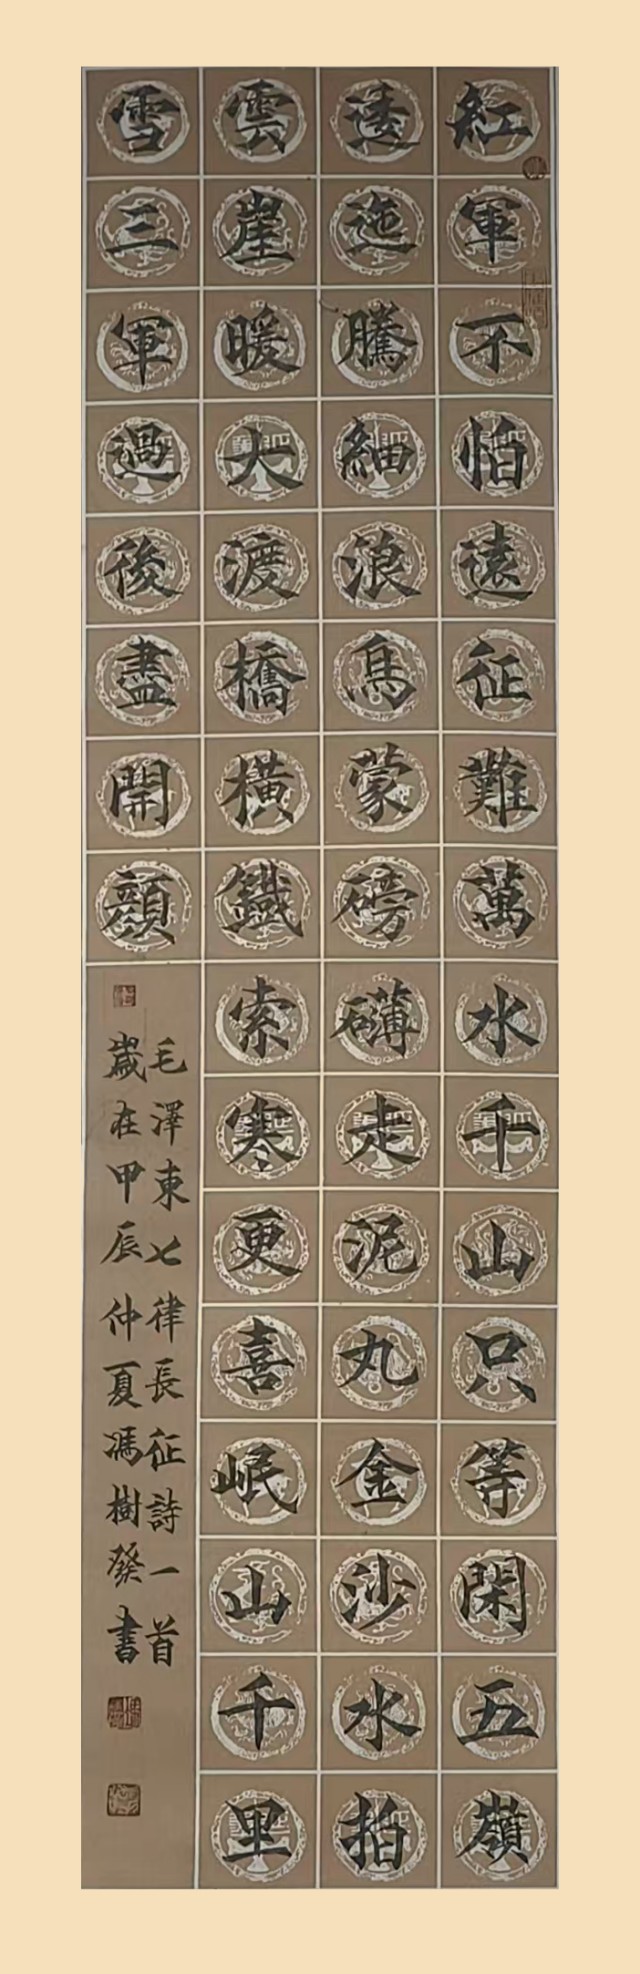 紅軍不怕遠征難萬水千山只等閑五嶺
逶迤騰細浪烏蒙磅礴走泥丸金沙水拍
雲崖暖大渡橋橫鐵索寒更喜岷山千里
雪三軍過後盡開顏
毛澤東七律長征詩一首
歲在甲辰仲夏馮樹發書